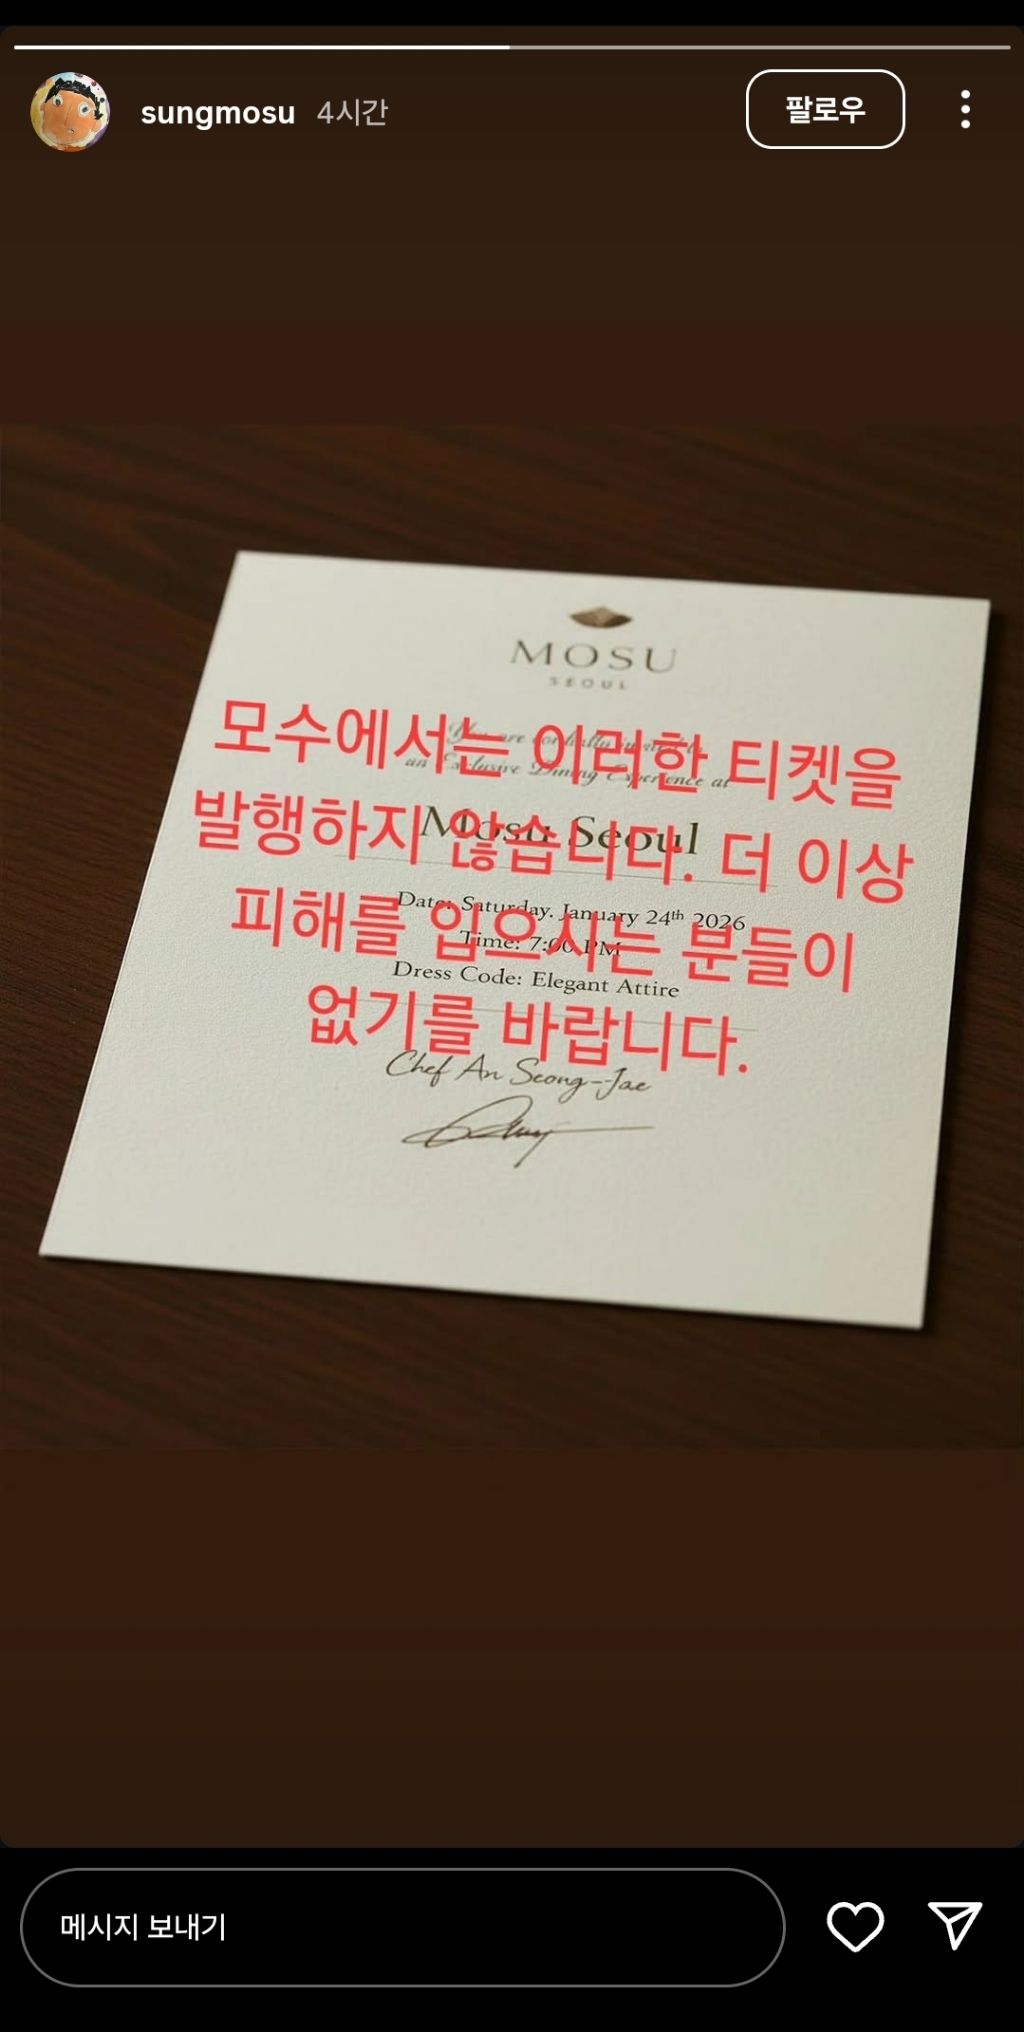 sungmosu 4시간
팔로우
MOSU
SEOUL
You are cordially invited to
an Exclusive Dining Experience at
Mosu Seoul
Date: Saturday. January 24th 2026
Time: 7:00 PM
Dress Code: Elegant Attire
Chef An Seong-Jae
모수에서는 이러한 티켓을
발행하지 않습니다. 더 이상
피해를 입으시는 분들이
없기를 바랍니다.
메시지 보내기